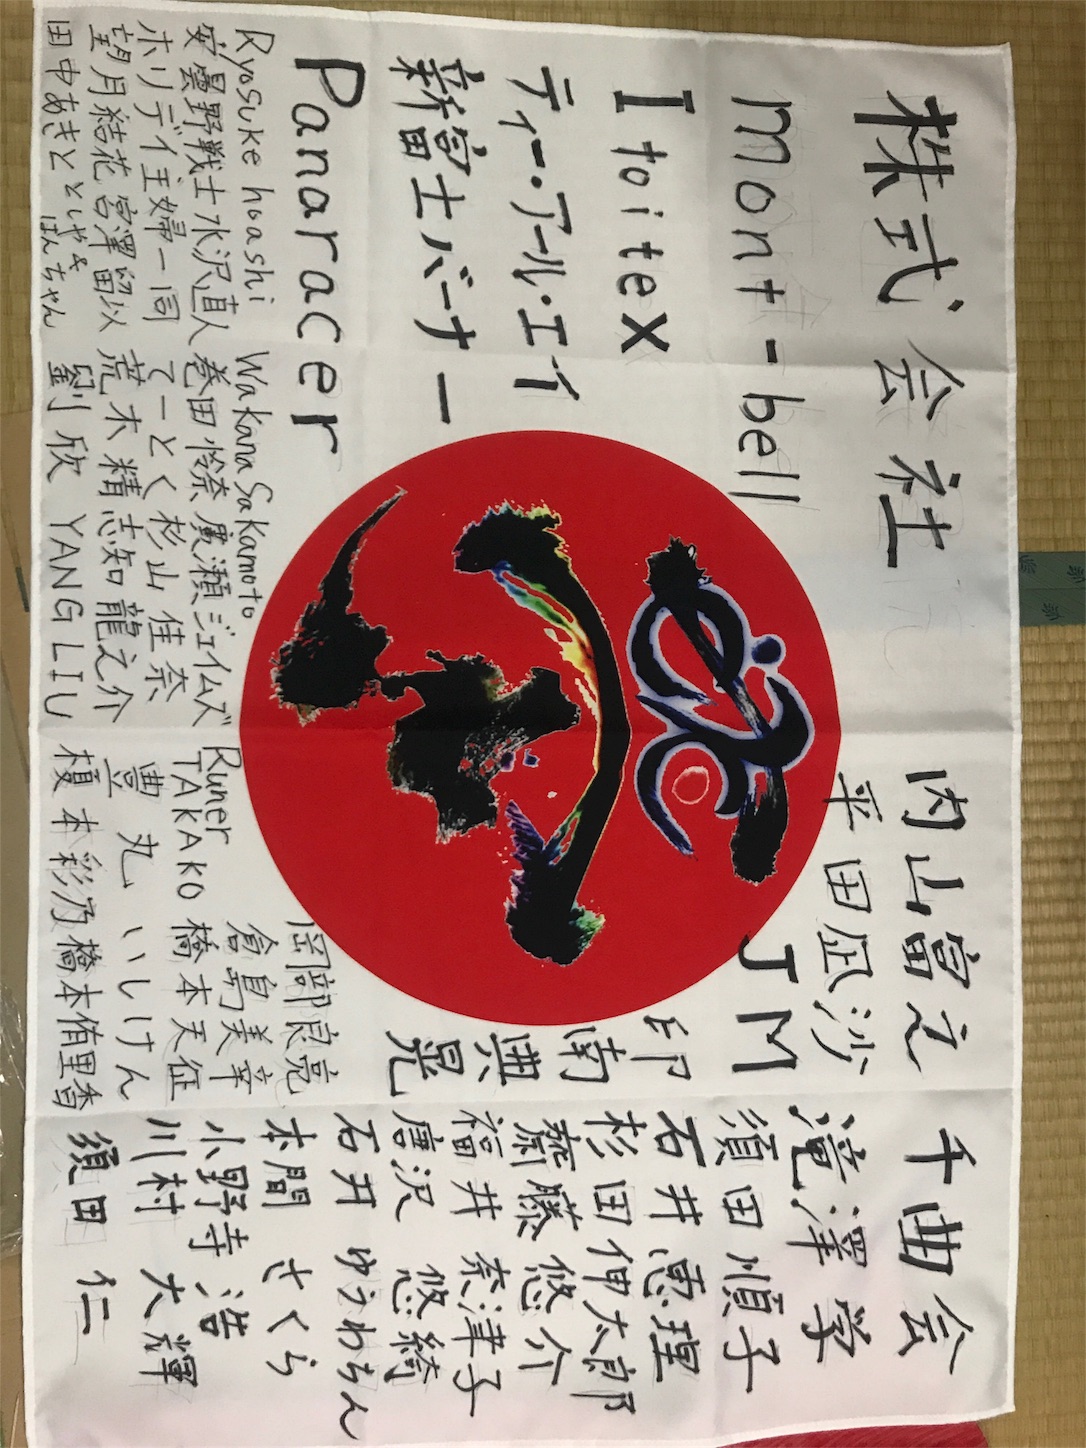 株式会社
mont-bell
Itoitex
ティー・アール・エイ
新富士バーナー
Panaracer
内山富之
平田凪沙
JM
印南典晃
千曲会
滝澤 学
須田 順子
石井 恵理
杉田 伸太郎
齋藤 悠介
福井 奈津子
唐沢 悠綺
石井 ゆうわちん
本間 さくら
小野寺 浩
川村 大輝
須田 仁
岡部良亮
Ryosuke hoashi Wakana Sakamoto 倉島美幸
安曇野戦士 水沢直人 巻田怜奈 廣瀬ジェイムズ Runer TAKAKO 橋本天征
ホリデイ主婦一同 てーとく 杉山佳奈 豊丸 いしけん
望月結花 宮澤留以 荒木精 志知龍之介
田中あきと はんちゃん 劉欣 YANG LIU 榎本彩乃 橋本侑里香